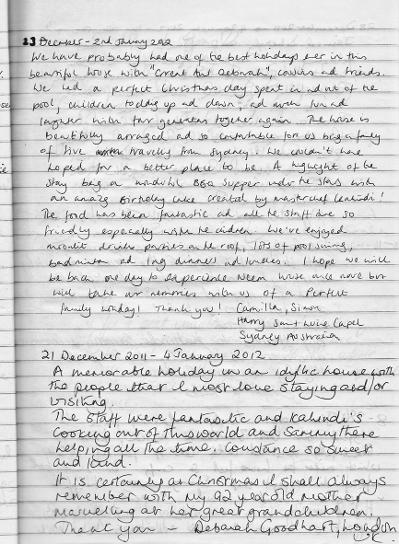 23 December - 2nd January 2012
We have probably had one of the best holidays ever in this
beautiful house with "Great Aunt Deborah", cousins and friends.
We had a perfect Christmas day spent in and out of the
pool, children up and down, and much fun and
laughter with four generations together again. The house is
beautifully arranged and so comfortable for us being a family
of five travelling from Sydney. We couldn't have
hoped for a better place to be. A highlight of the
stay being a wonderful BBQ supper under the stars with
an amazing Birthday cake created by masterchef Kahindi!
The food has been fantastic and all the staff are so
friendly especially with the children. We've enjoyed
drinks parties on the roof, lots of pool swimming,
badminton and long dinners and lunches. I hope we will
be back one day to experience house once more but
will take our memories with us of a Perfect
family holiday! Thank you! Camilla, Simon
Harry Capel
Sydney Australia
21 December 2011 - 4 January 2012
A memorable holiday in an idyllic house with
the people that I most love staying and/or
visiting.
The staff were fantastic and Kahindi's
Cooking out of this world and Sammy there
helping all the time. Constance so sweet
and kind.
It is certainly a Christmas I shall always
remember with my 92 year old mother
marvelling at her great grandchildren.
Thank you - Deborah Goodhart, London